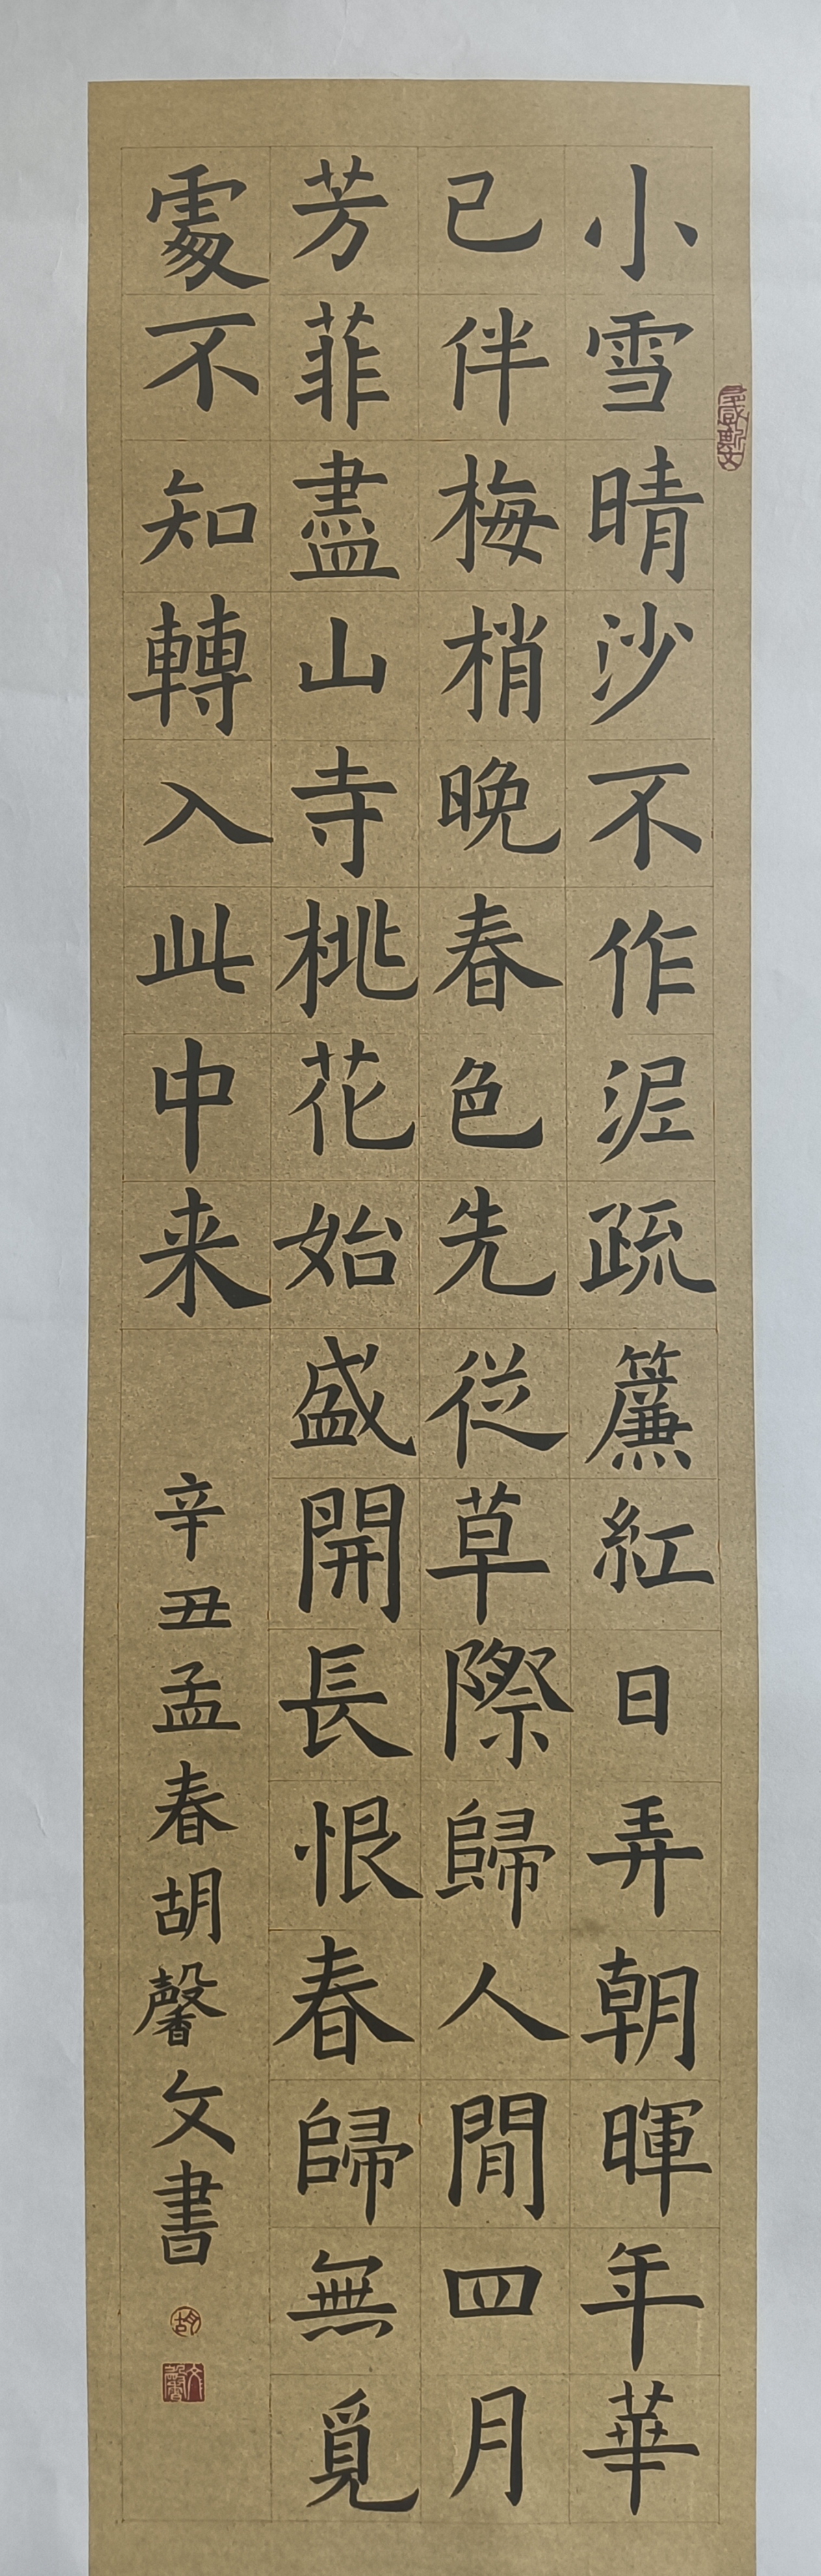 小雪晴沙不作泥疏簾紅日弄朝暉年華
已伴梅梢晚春色先從草際歸人間四月
芳菲盡山寺桃花始盛開長恨春歸無覓
處不知轉入此中来
辛丑孟春胡馨文書